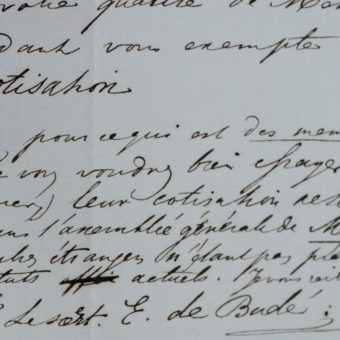 votre qualité de Mem
dant vous exempte
otisation
pour ce qui est des mem
vous voudrez bien essayer
leur cotisation
l'assemblée générale de M
étrangers n'étant pas
tuts actuels. Je vous
Le secrt. E. de Budé: